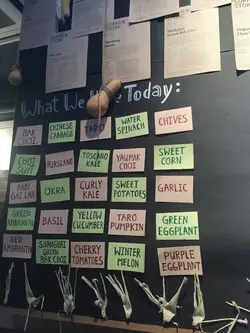 CORNER
STORE
CORNER
STORE
What We Have Today:
BAK
CHOI
CHINESE
CABBAGE
TARO
WATER
SPINACH
CHIVES
CHOI
SUM
PURSLANE
TOSCANO
KALE
YAUMAK
CHOI
SWEET
CORN
GAI LAN
OKRA
CURLY
KALE
SWEET
POTATOES
GARLIC
GREEN
AMARANTH
BASIL
YELLOW
CUCUMBER
TARO
PUMPKIN
GREEN
EGGPLANT
RED
AMARANTH
SHANGHAI
GREEN
BAK CHOI
CHERRY
TOMATOES
WINTER
MELON
PURPLE
EGGPLANT